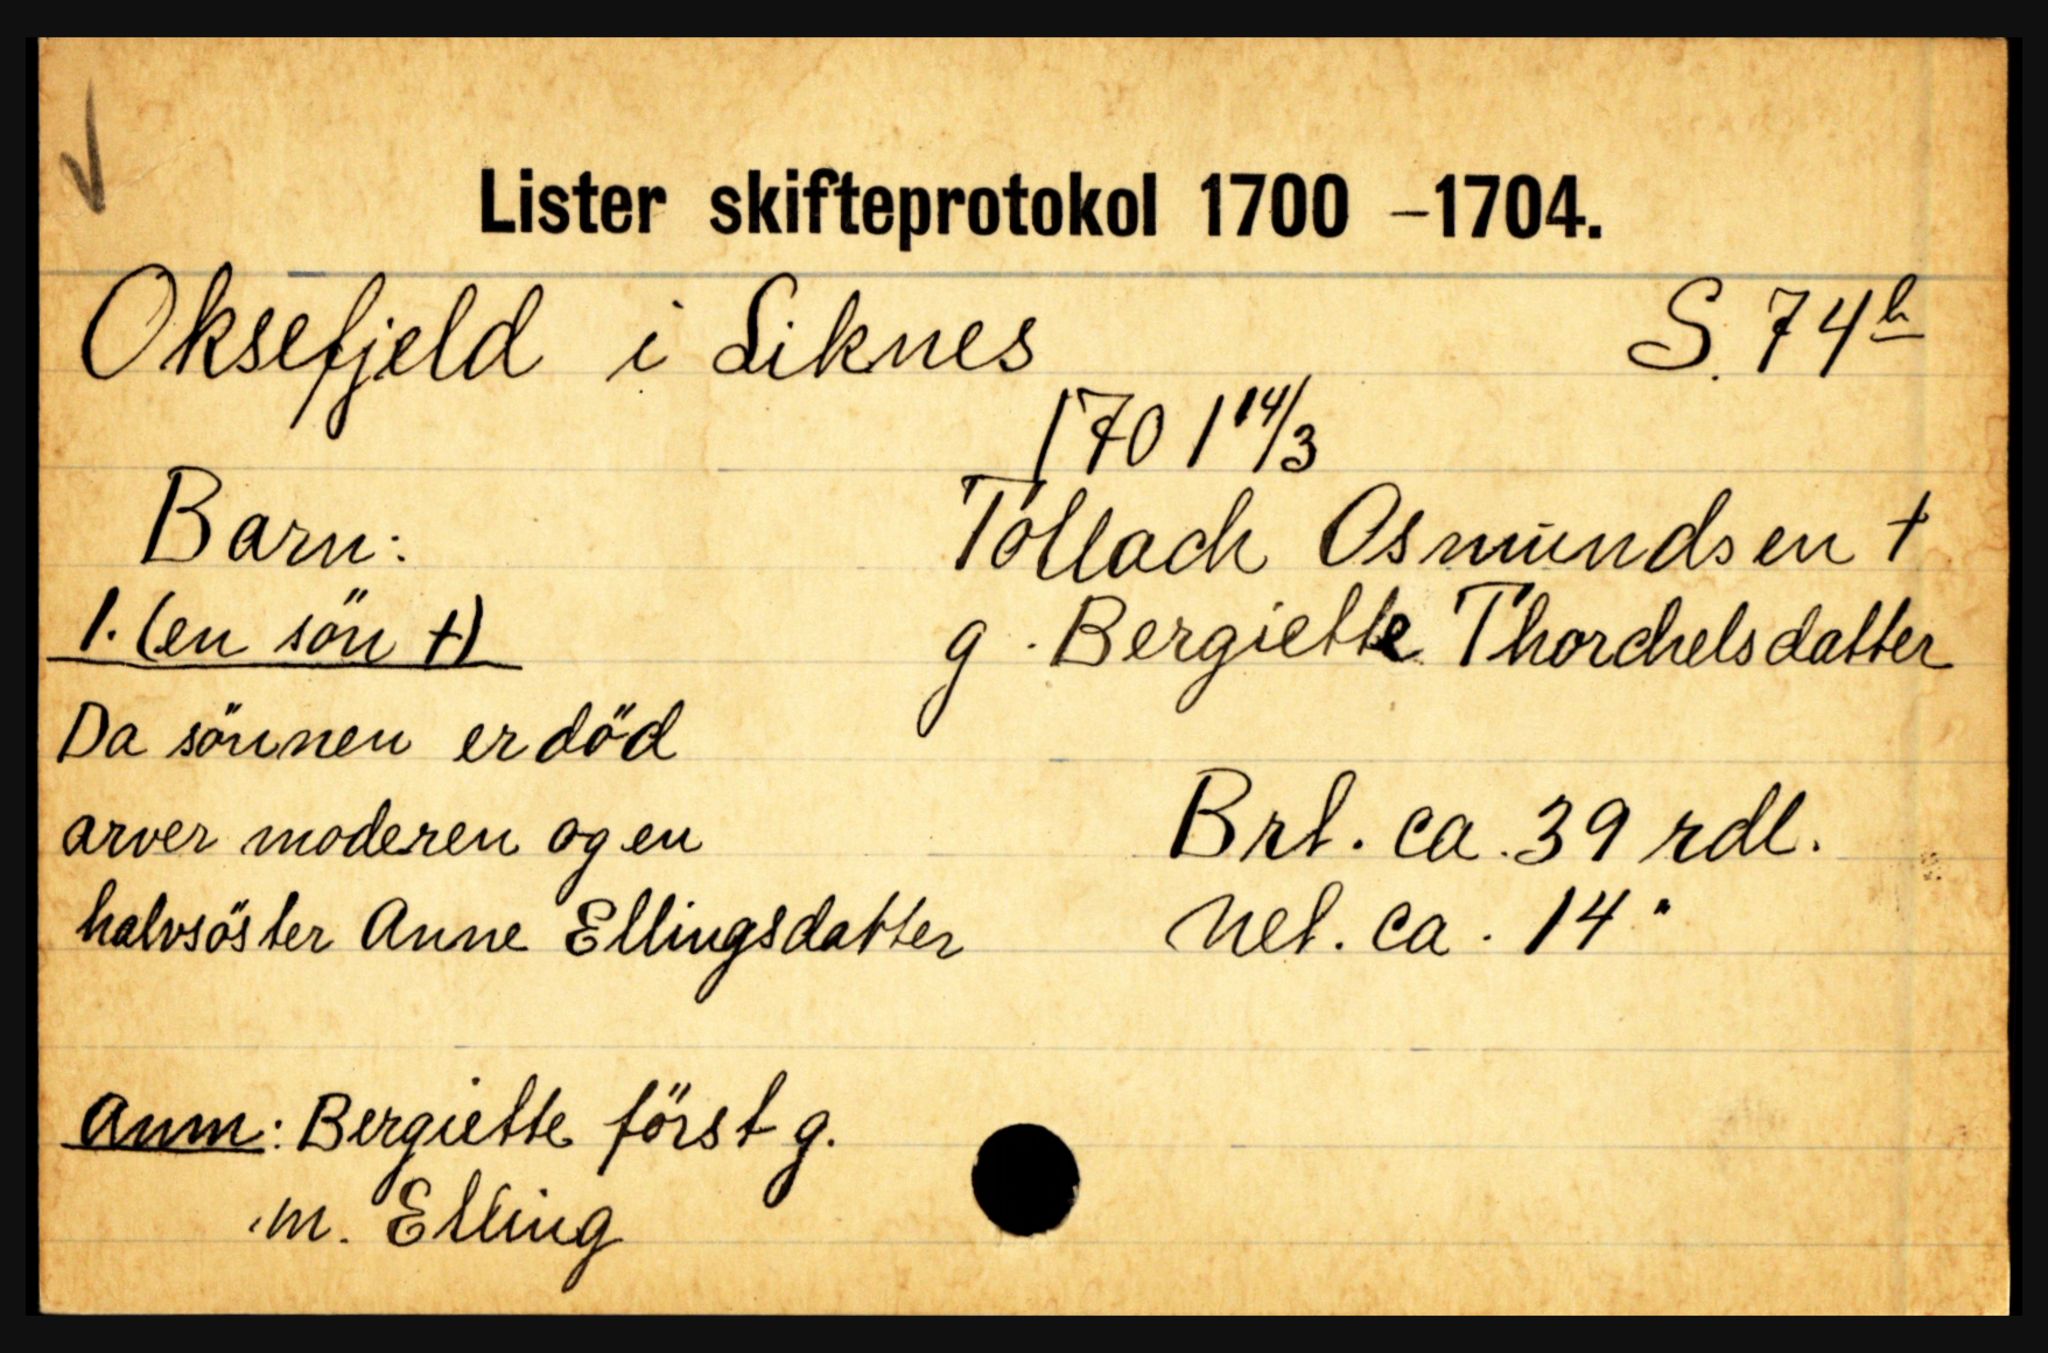 Lister skifteprotokol 1700 – 1704.
Oksefjeld i Liknes S. 74b
1701 14/3
Barn: Tollach Osmundsen †
1. (en sön †) g. Bergiette Thorchelsdatter
Da sönnen er död
arver moderen og en Brt. ca. 39 rdl.
halvsöster Anne Ellingsdatter Net. ca. 14 "
Anm: Bergiette först g.
m. Elling